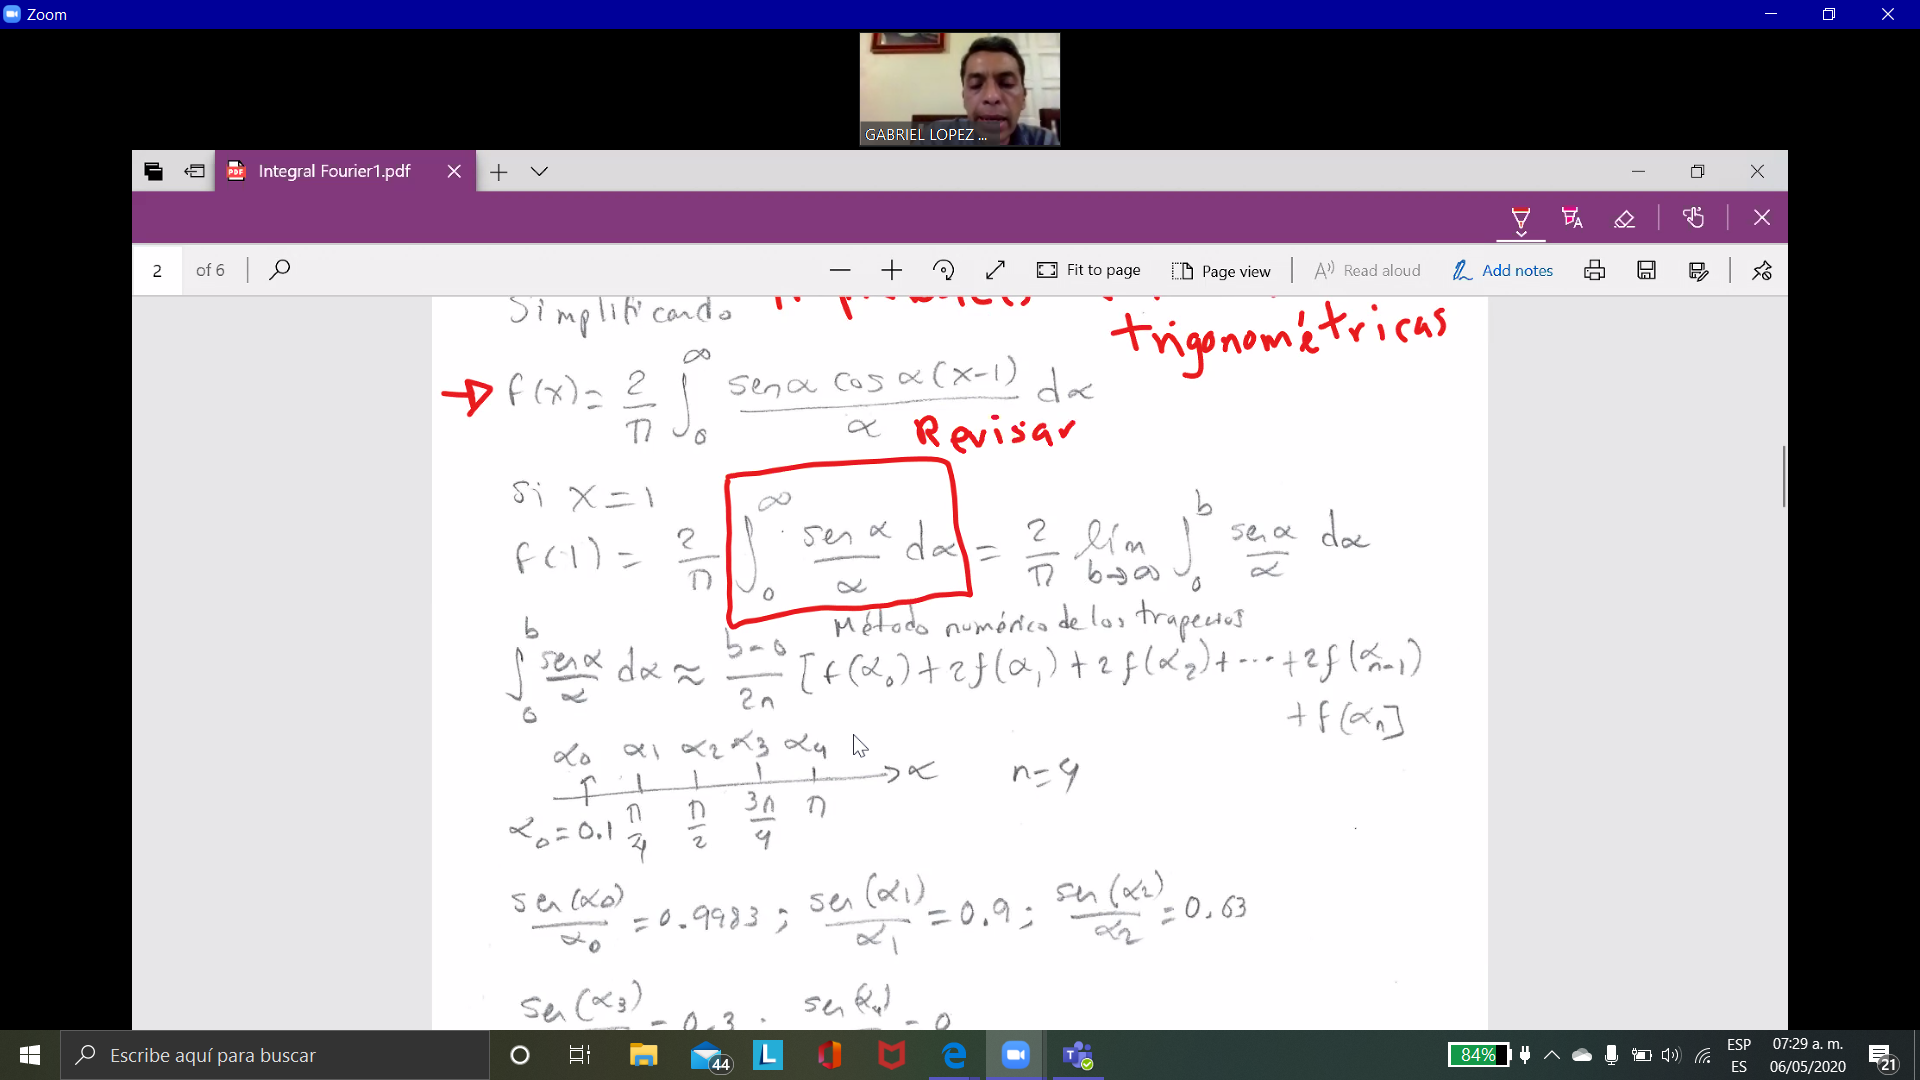 Zoom
GABRIEL LOPEZ ...
Integral Fourier1.pdf
2 of 6
Fit to page
Page view
Read aloud
Add notes
Simplificando
trigonométricas
f(x) = 2/π ∫₀^∞ sen α cos α(x-1) / α dα
Revisar
Si x = 1
f(1) = 2/π ∫₀^∞ sen α / α dα = 2/π lím b→∞ ∫₀^b sen α / α dα
Método numérico de los trapecios
∫₀^b sen α / α dα ≈ b-0 / 2n [f(α₀) + 2f(α₁) + 2f(α₂) + ... + 2f(αₙ₋₁)
+ f(αₙ]
α₀ α₁ α₂ α₃ α₄
α n=4
α₀ = 0.1 π/4 π/2 3π/4 π
sen(α₀)/α₀ = 0.9983 ; sen(α₁)/α₁ = 0.9 ; sen(α₂)/α₂ = 0.63
sen(α₃) = 0.3 . sen(α₄) = 0
Escribe aquí para buscar
44
84%
ESP
ES
07:29 a. m.
06/05/2020
21